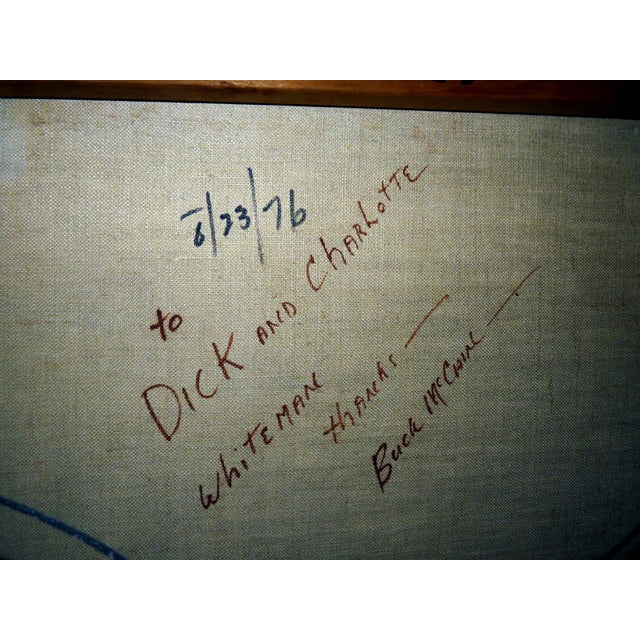 6/23/76
to
DICK AND CHARLOTTE
WHITEMAN
thanks —
Buck McCain —